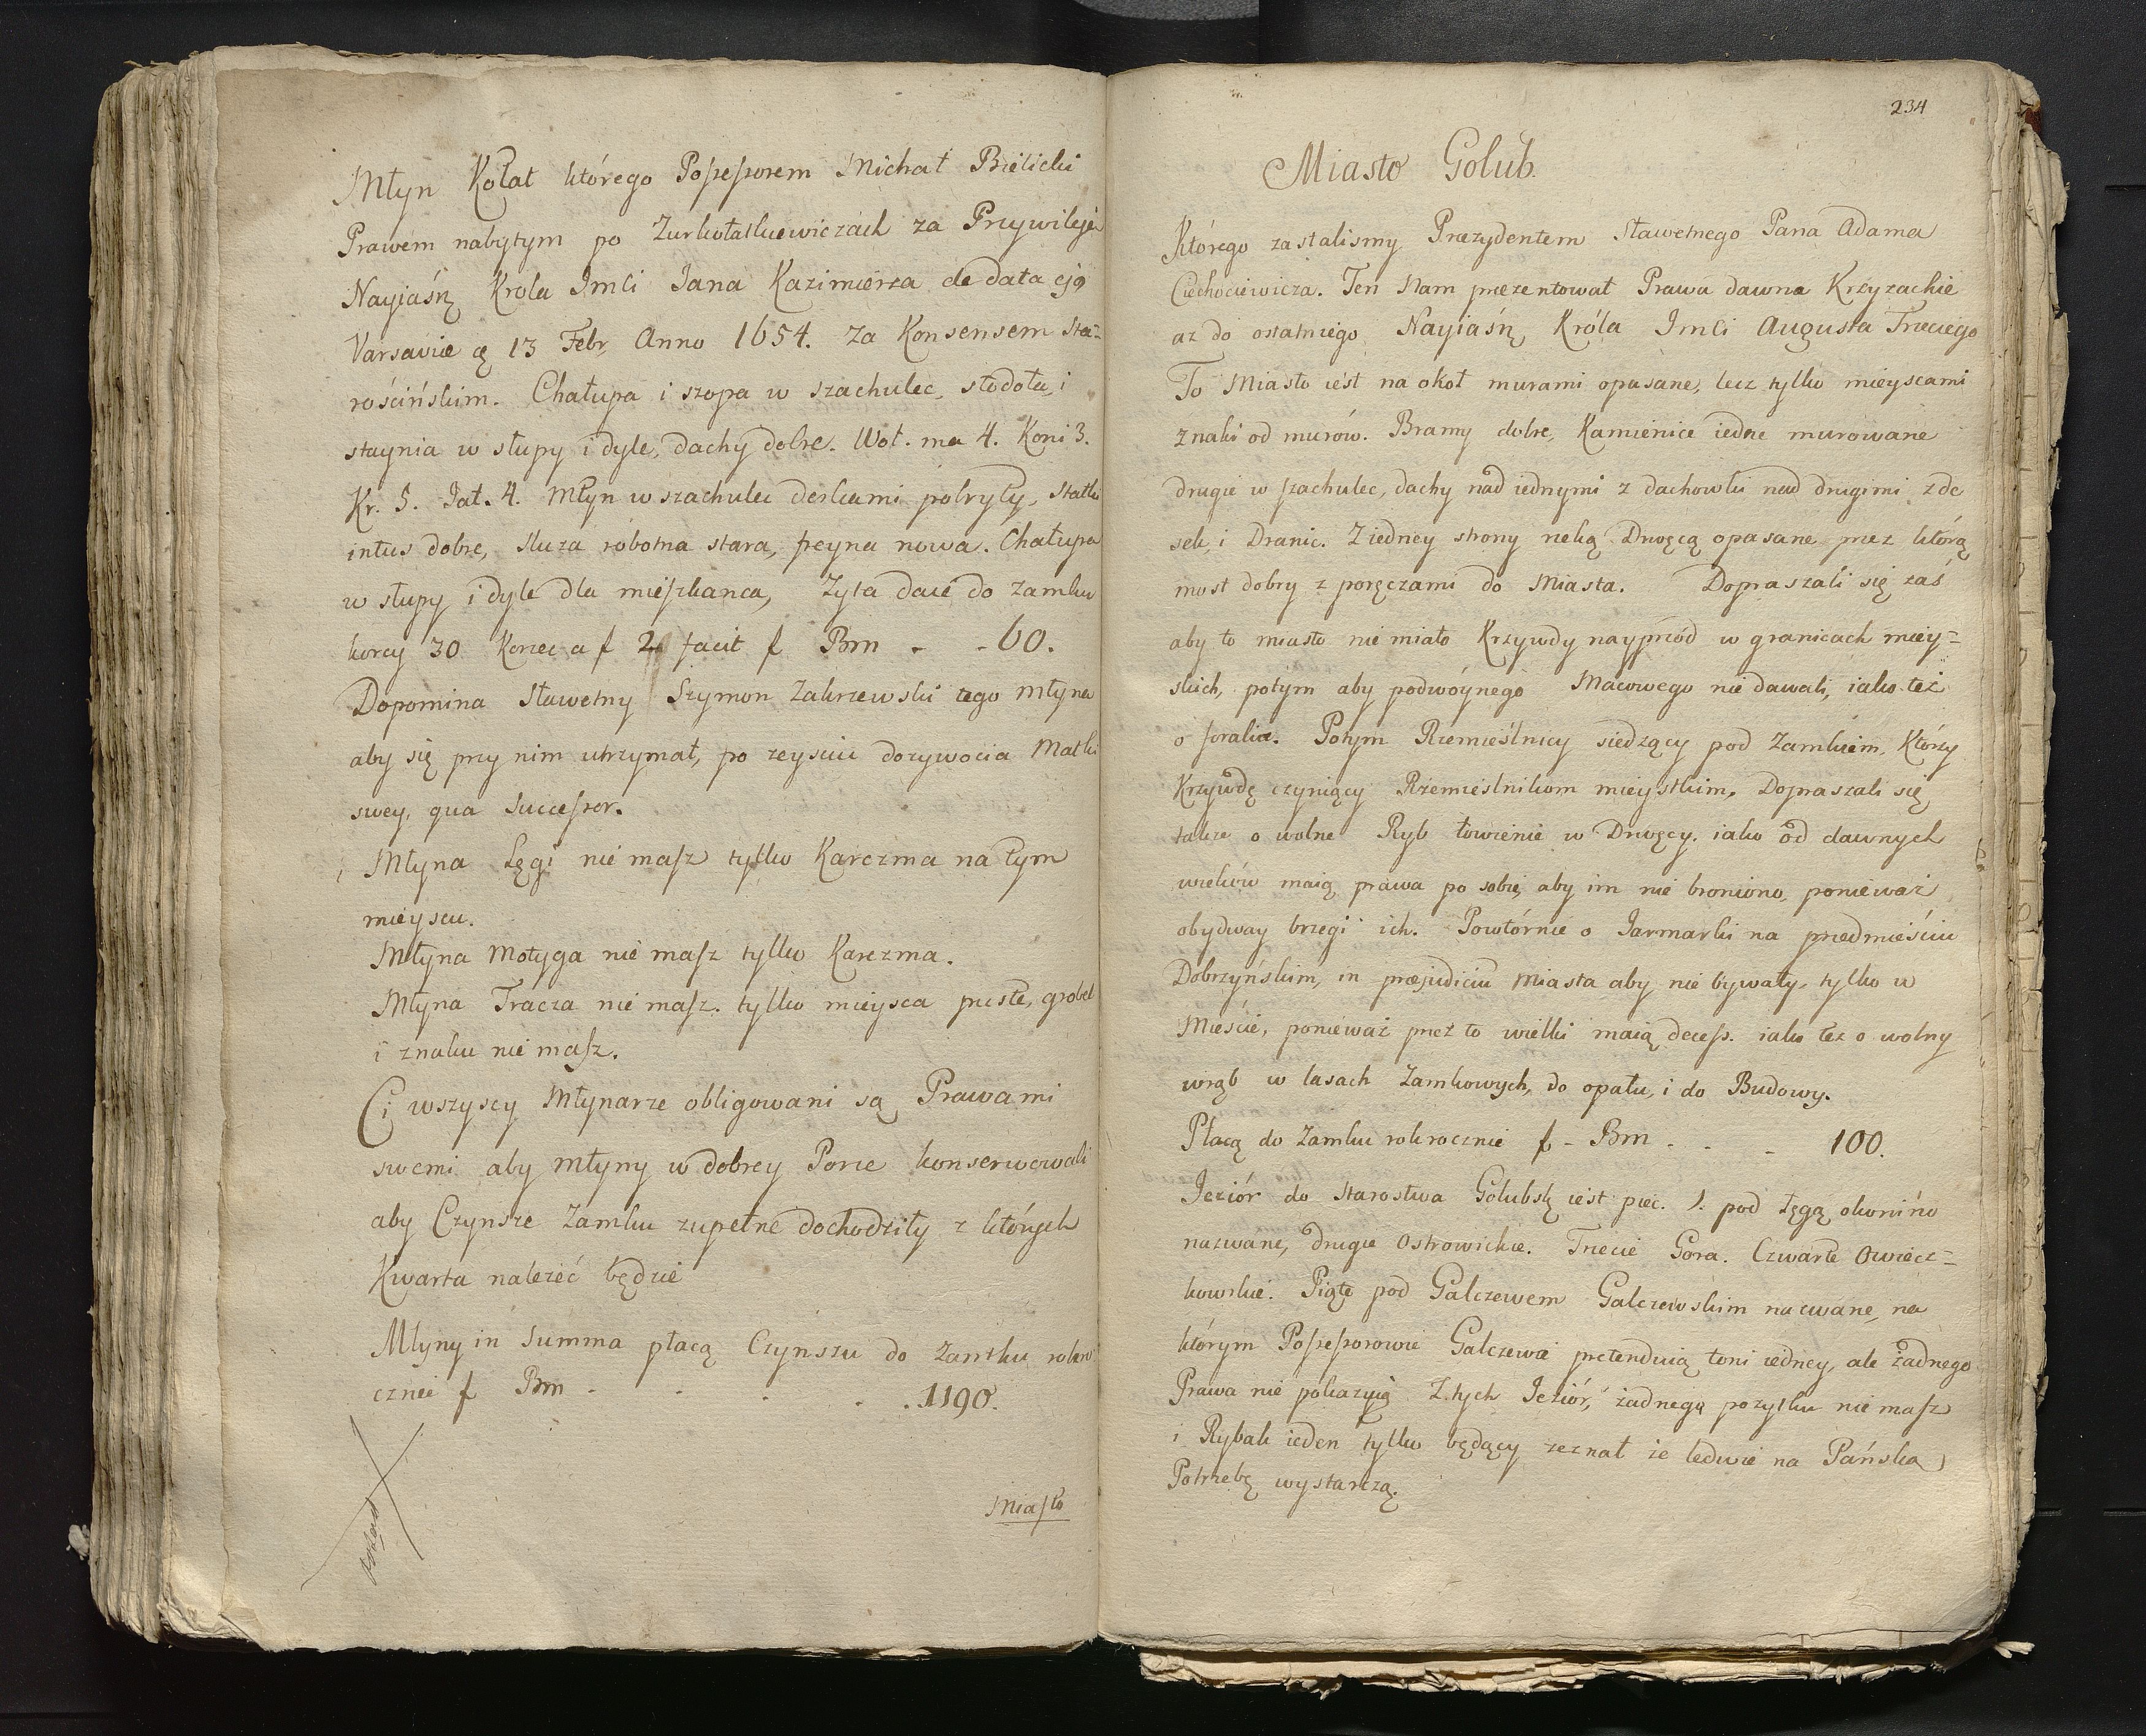 Młyn Kołat którego Possessorem Michał Bielicki
Prawem nabytym po Zurkołatkiewiczach za Przywileje
Nayiaśń Krola Imci Jana Kazimierza de data ejo
Varsavie 13 Febr. Anno 1654. Za Konsensem Sta=
rościńskim. Chałupa i szopa w szachulec, stodoła, i
staynia w słupy i dyle, dachy dobre. Woł. ma 4. Koni 3.
Kr. 5. Jał. 4. Młyn w szachulec deskami pokryty, statki
intus dobre, sluza robotna stara, freyna nowa. Chałupa
w słupy i dyle dla mieszkanca, Zyta daie do Zamku
korcy 30 Korzec a f 2 facit f Bm - - 60.
Dopomina Sławetny Szymon Zakrzewski tego Młyna
aby się przy nim utrzymał, po zeysciu dozywocia Matki
swey, qua Successor.
Młyna Łęgi nie masz tylko Karczma na tym
mieyscu.
Młyna Motyga nie masz tylko Karczma.
Młyna Tracza nie masz. tylko mieysca puste, grobel
i znaku nie masz.
Ci wszyscy Młynarze obligowani są Prawami
swemi aby młyny w dobrey Porze konserwowali
aby Czynsze Zamku zupełne dochodziły z których
Kwarta nalezeć będzie
Młyny in Summa płacą Czynszu do Zamku rokro
cznie f Bm - - - - . 1190.
Miasto
234
Miasto Golub.
Którego zastalismy Prezydentem Sławetnego Pana Adama
Ciechociewicza. Ten Nam prezentował Prawa dawna Krzyzackie
az do ostatniego Nayiaśń Króla Imci Augusta Trzeciego
To Miasto iest na okoł murami opasane, lecz tylko mieyscami
znaki od murów. Bramy dobre, Kamienice iedne murowane
drugie w szachulec, dachy nad iednymi z dachowki nad drugimi z de
sek, i Dranic. Z iedney strony reką Drwęcą opasane przez którą
most dobry z poręczami do Miasta. Dopraszali się zaś
aby to miasto nie miało Krzywdy nayprzód w granicach miey=
skich, potym aby podwóynego Macowego nie dawali, iako też
o foralia. Potym Rzemieślnicy siedzący pod Zamkiem, Którzy
Krzywdę czyniący Rzemieślnikom mieyskim. Dopraszali się
takze o wolne Ryb łowienie w Drwęcy. iako od dawnych
wieków maią prawa po sobie, aby im nie broniono, ponieważ
obydway brzegi ich. Powtórnie o Jarmarki na przedmieściu
Dobrzyńskim, in præjudiciu Miasta aby nie bywały, tylko w
Mieście, ponieważ przez to wielki maią decess. iako tez o wolny
wrąb w lasach Zamkowych, do opału, i do Budowy.
Płacą do Zamku rokrocznie f - Bm - - - 100.
Jeziór do Starostwa Golubsk iest pięc. 1. pod Łęgą okonino
nazwane, drugie Ostrowickie. Trzecie Gora. Czwarte Owiecz=
kowskie. Piąte pod Galczewem Galczewskim nazwane, na
którym Possessorowie Galczewa pretenduią toni iedney, ale żadnego
Prawa nie pokazuią Z tych Jeziór, żadnego pozytku nie masz
i Rybak ieden tylko będący zeznał ze ledwie na Pańska
Potrzebę wystarczą.